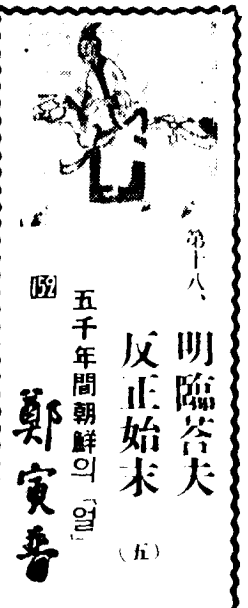 第十八、
明臨答夫
反正始末
(五)
五千年間朝鮮의「얼」
159
鄭寅普